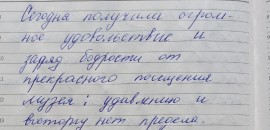 Сегодня получили огром-
ное удовольствие и
заряд бодрости от
прекрасного посещения
музея; удивлению и
восторгу нет предела.